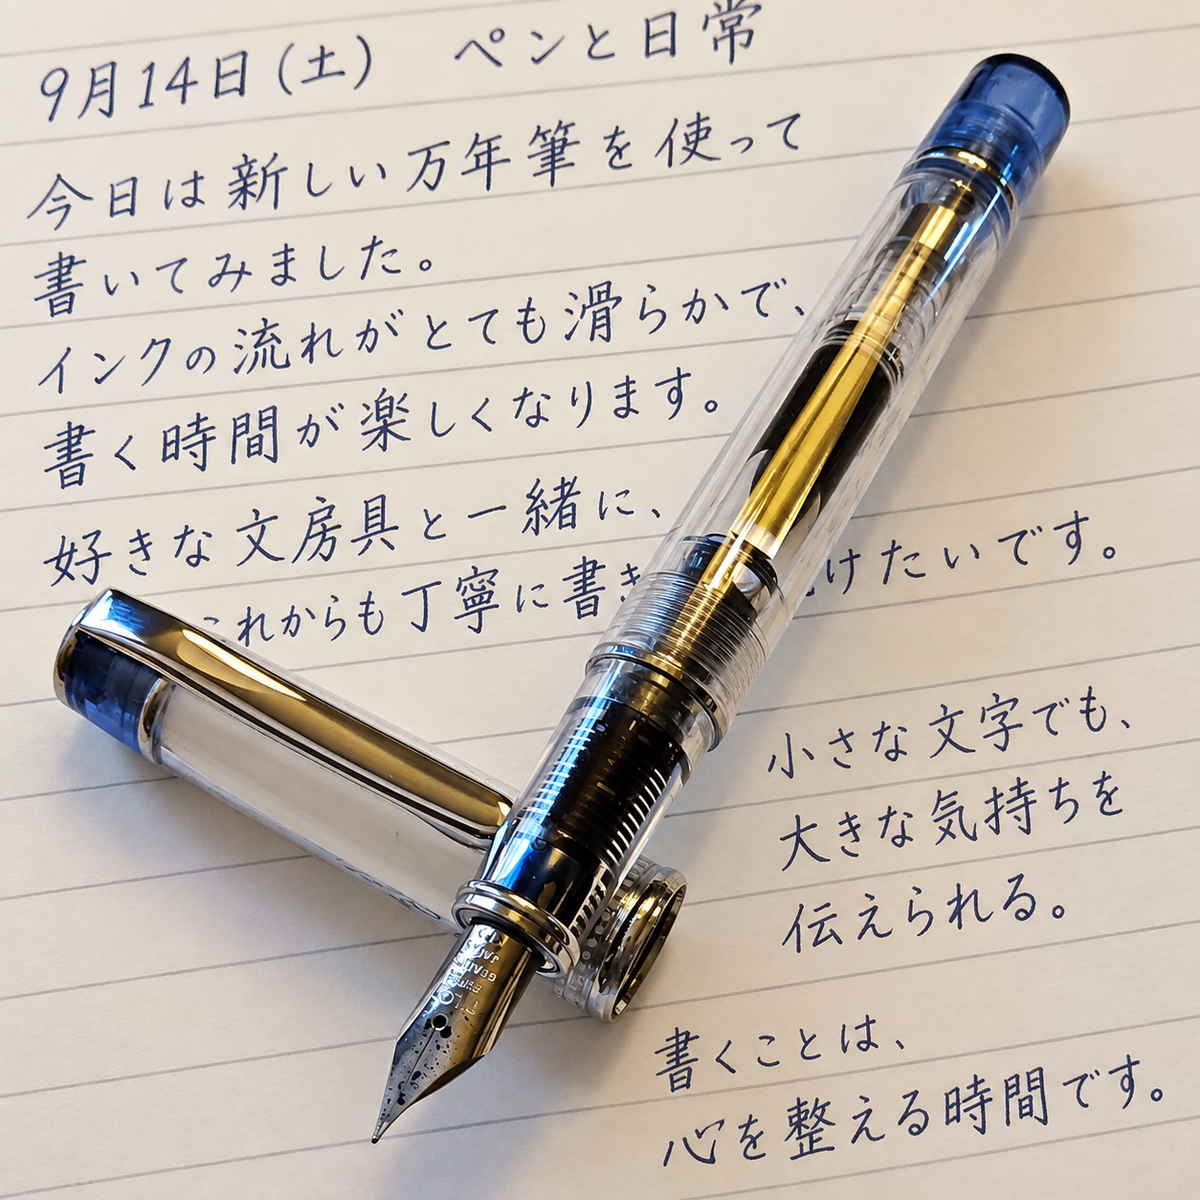 9月14日(土) ペンと日常
今日は新しい万年筆を使って
書いてみました。
インクの流れがとても滑らかで、
書く時間が楽しくなります。
好きな文房具と一緒に、
これからも丁寧に書き けたいです。
小さな文字でも、
大きな気持ちを
伝えられる。
書くことは、
心を整える時間です。